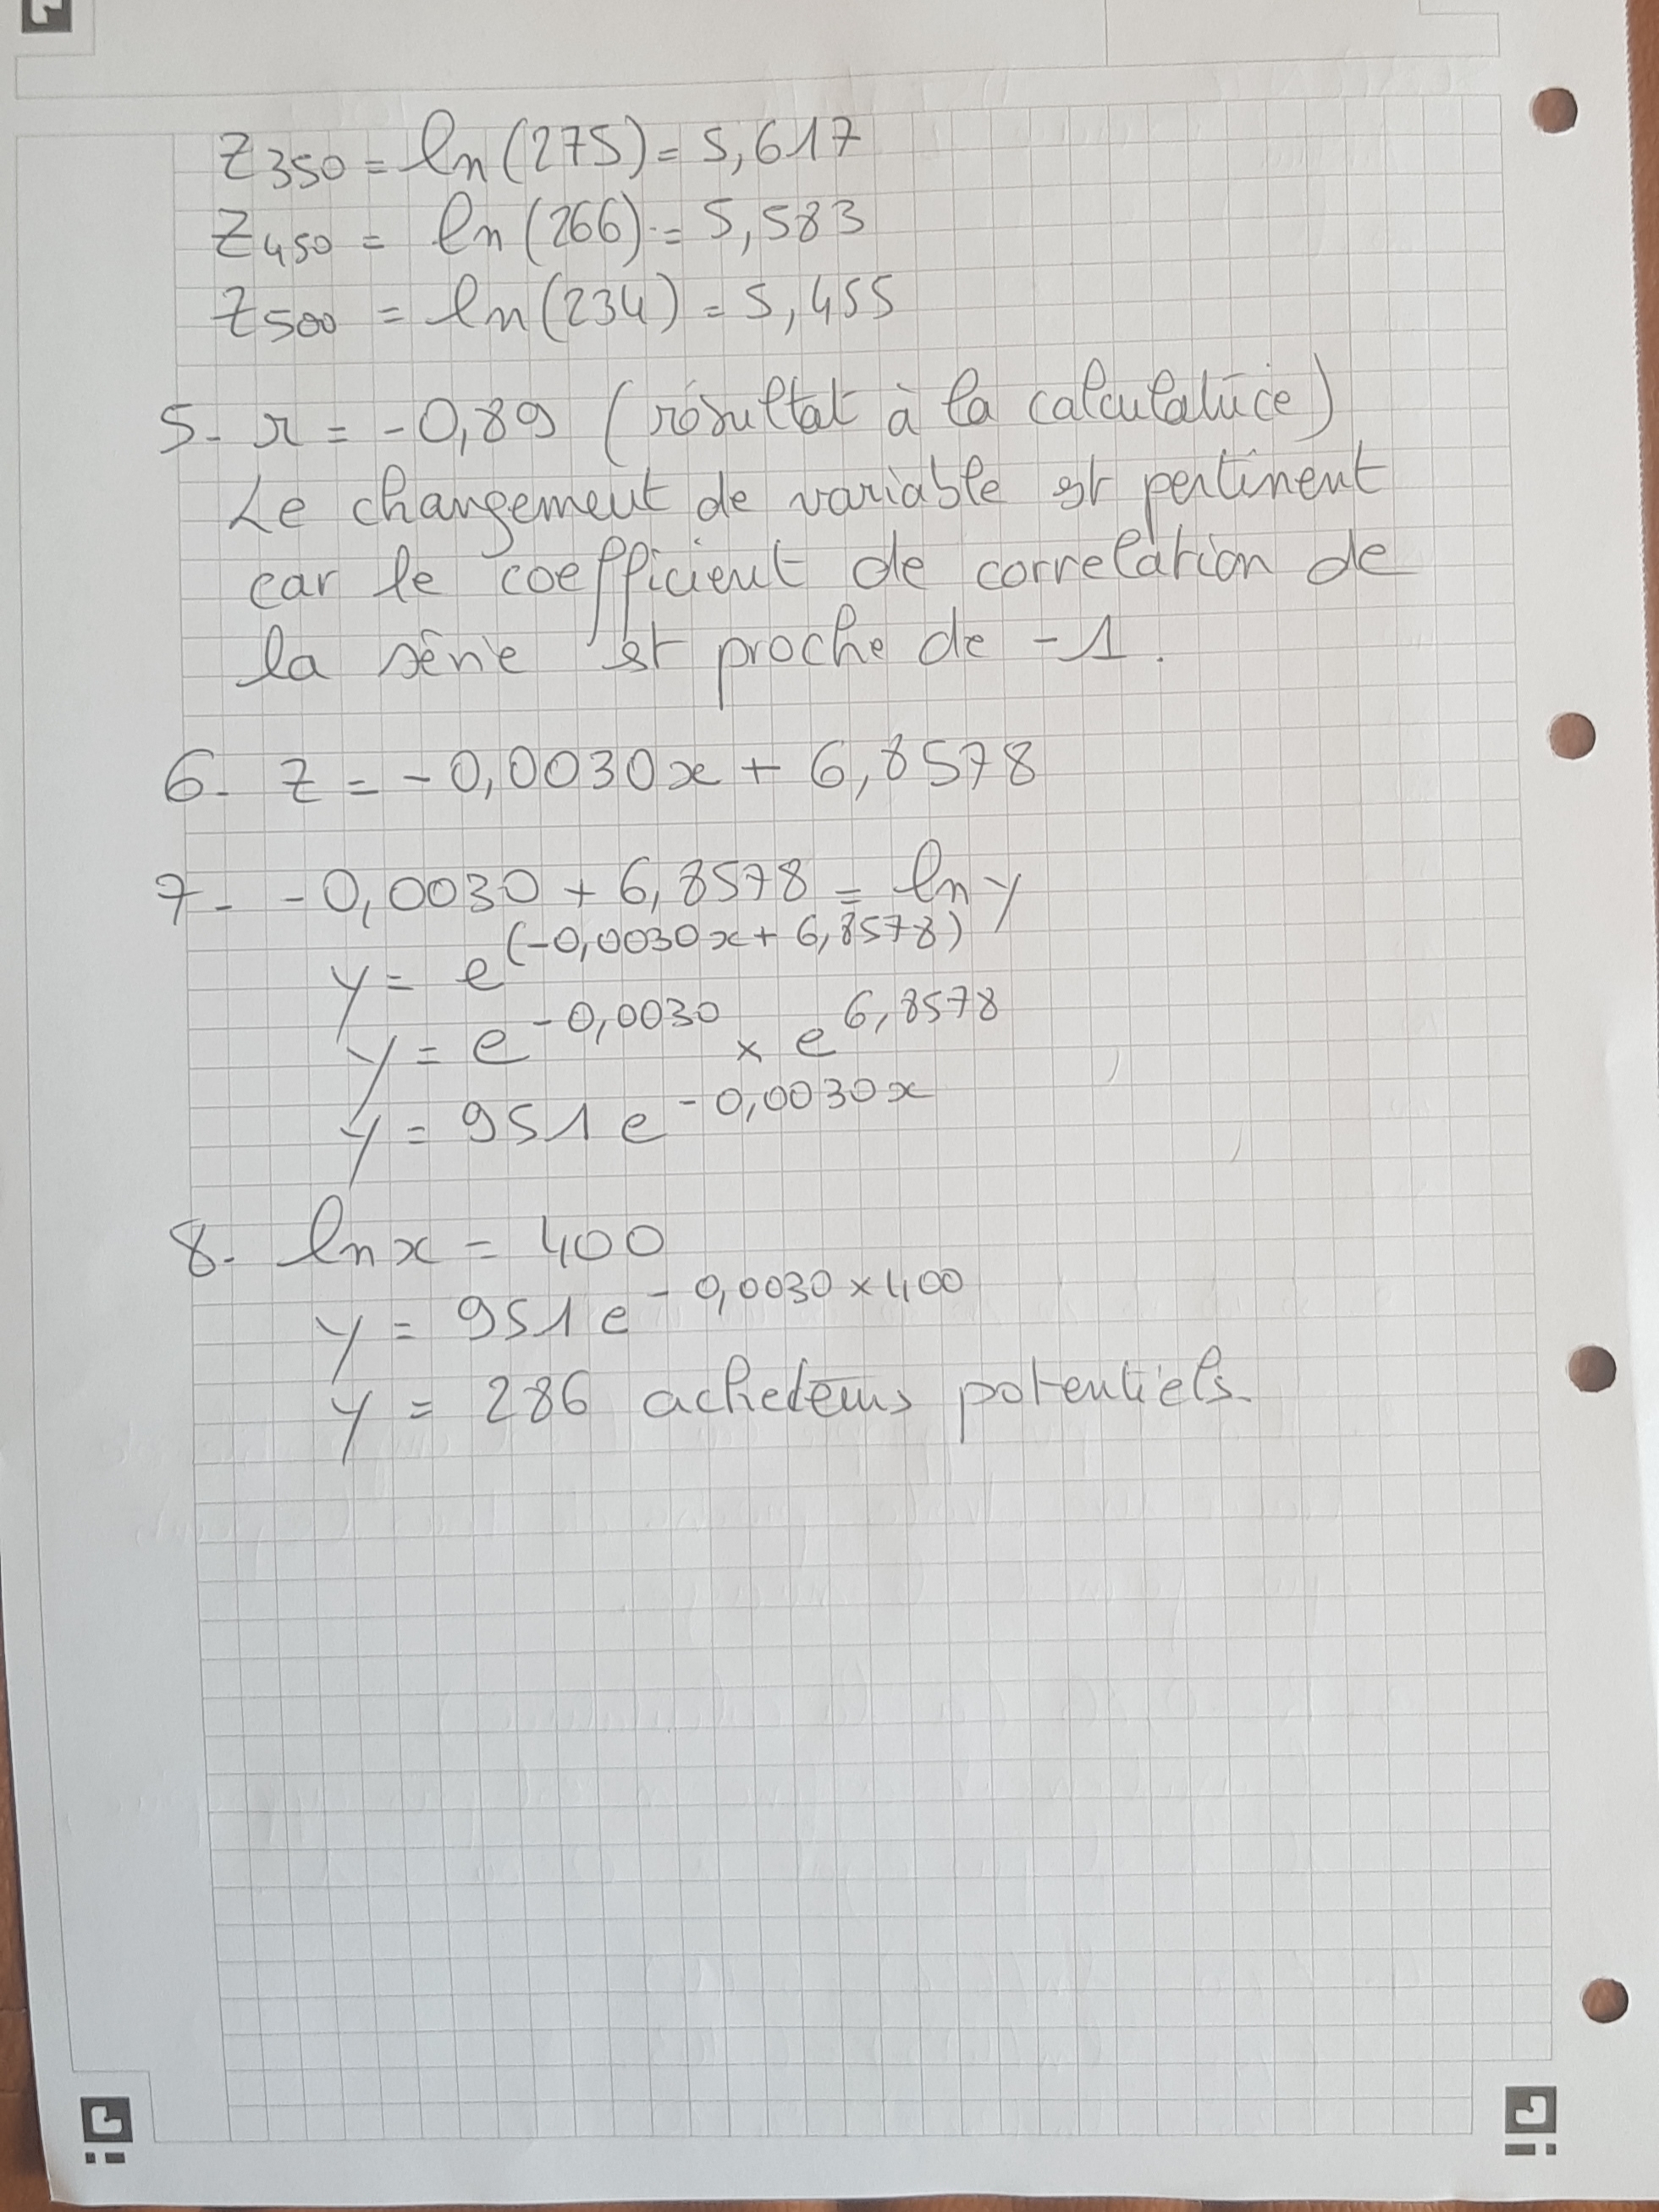 Z350 = ln(275) = 5,617
Z450 = ln(266) = 5,583
Z500 = ln(234) = 5,455
5- r = -0,89 (résultat à la calculatrice)
Le changement de variable est pertinent
car le coefficient de correlation de
la série est proche de -1.
6- z = -0,0030x + 6,8578
7- -0,0030 + 6,8578 = ln y
y = e^(-0,0030x + 6,8578)
y = e^-0,0030 × e^6,8578
y = 951 e^-0,0030x
8- ln x = 400
y = 951 e^-0,0030 × 400
y = 286 acheteurs potentiels.